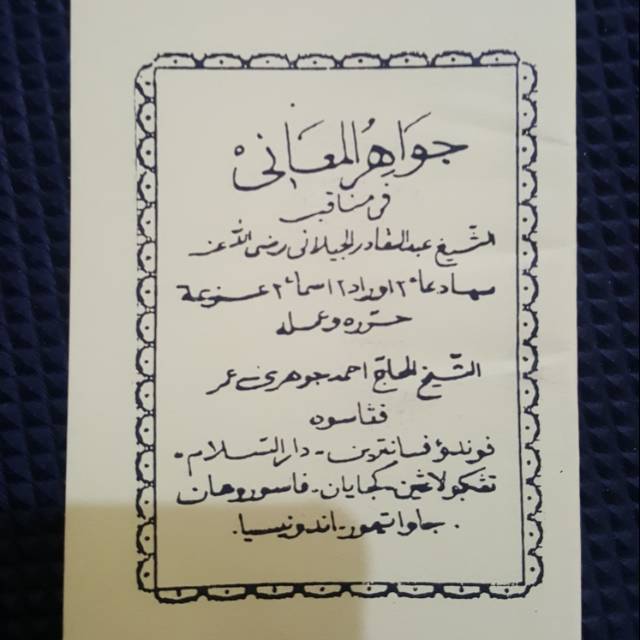 جواهر المعاني
في مناقب
الشيخ عبد القادر الجيلاني رضي الله عنه
سرتا دعاء٢ اوراد٢ اسماء٢ عزيمة
حرره وعمله
الشيخ الحاج احمد جوهري عمر
فڠاسوه
فوندوق فسانترين - دار السلام -
تڠكولاڠين - كجايان - فاسوروهان
جاوا تيمور - اندونيسيا.